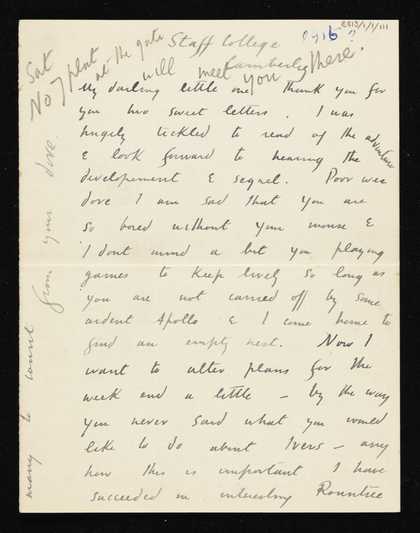 8313/1/1/111
? 1916 ?
Staff College
Camberley
Sat
No 7 plat at the gate
will meet you there.
My darling little one, Thank you for
you two sweet letters. I was
hugely tickled to read of the adventure
& look forward to hearing the
developement & sequel. Poor wee
dove I am sad that you are
so bored without your mouse &
I dont mind a bit you playing
games to keep lively so long as
you are not carried off by some
ardent Apollo & I come home to
find an empty nest. Now I
want to alter plans for the
week end a little – by the way
you never said what you would
like to do about Ivers – any
how this is important I have
succeeded in interesting Rountree
many to count
from your dove.